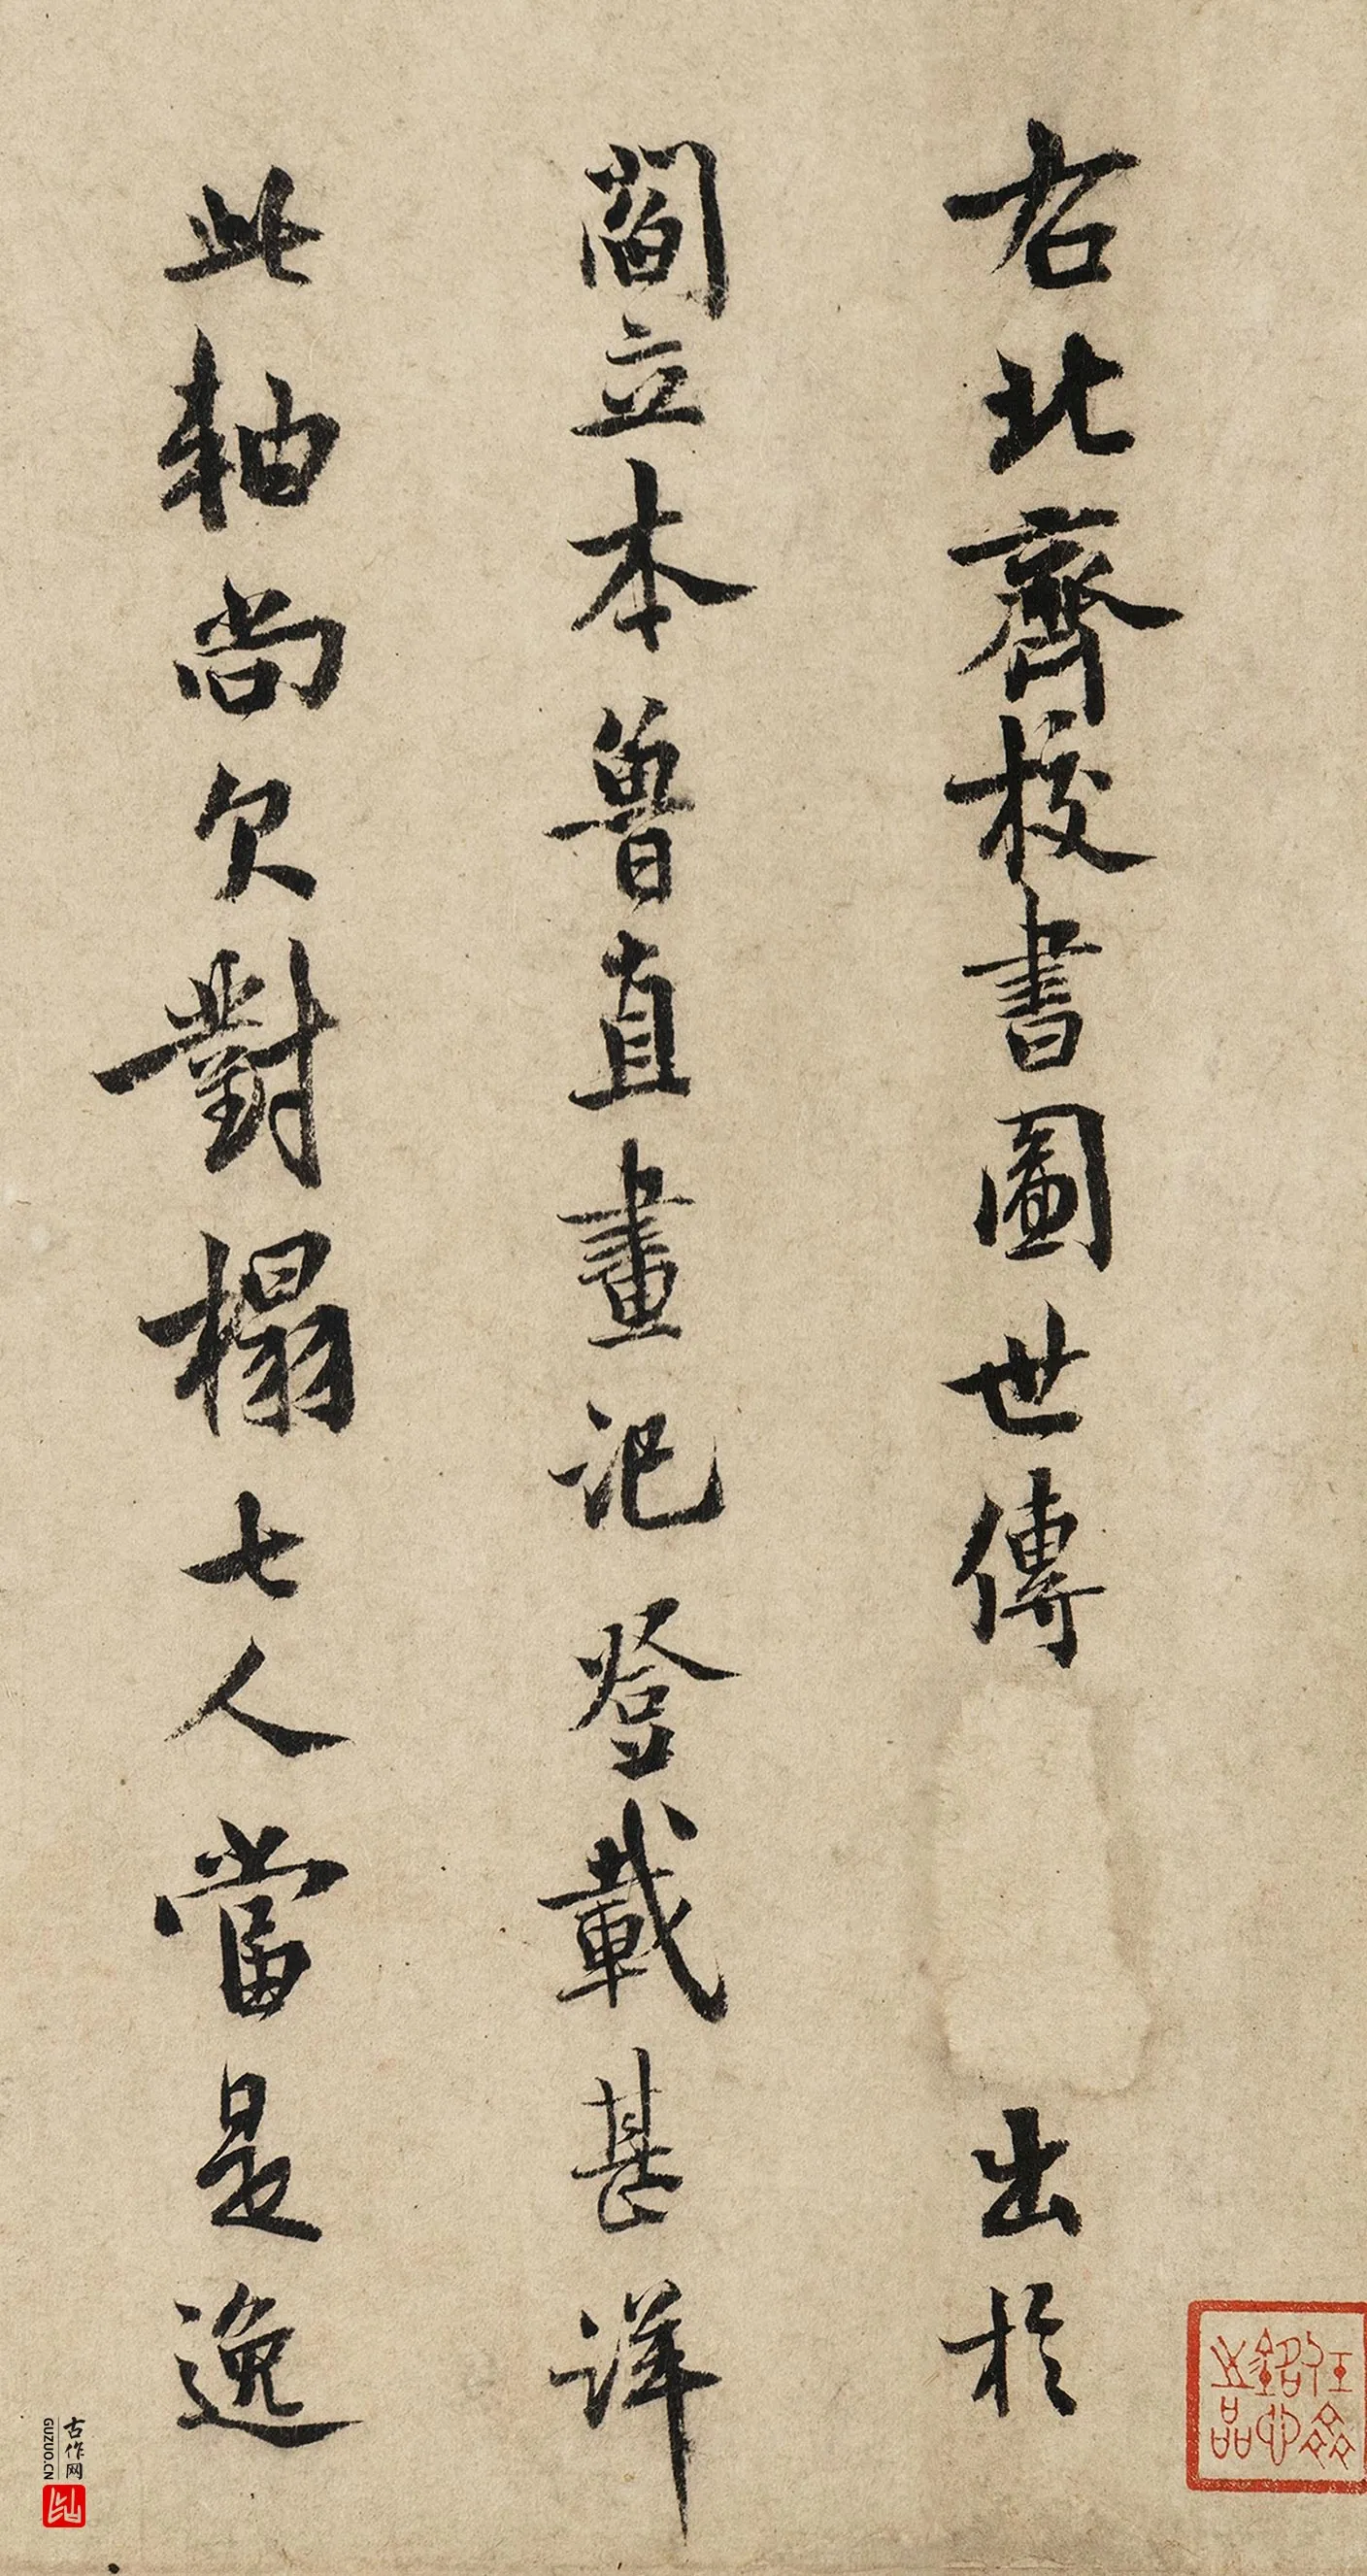 右北齊校書圖世傳出於
閻立本魯直畫記登載甚詳
此軸尚欠對榻七人當是逸
古作网
GUZUO.CN